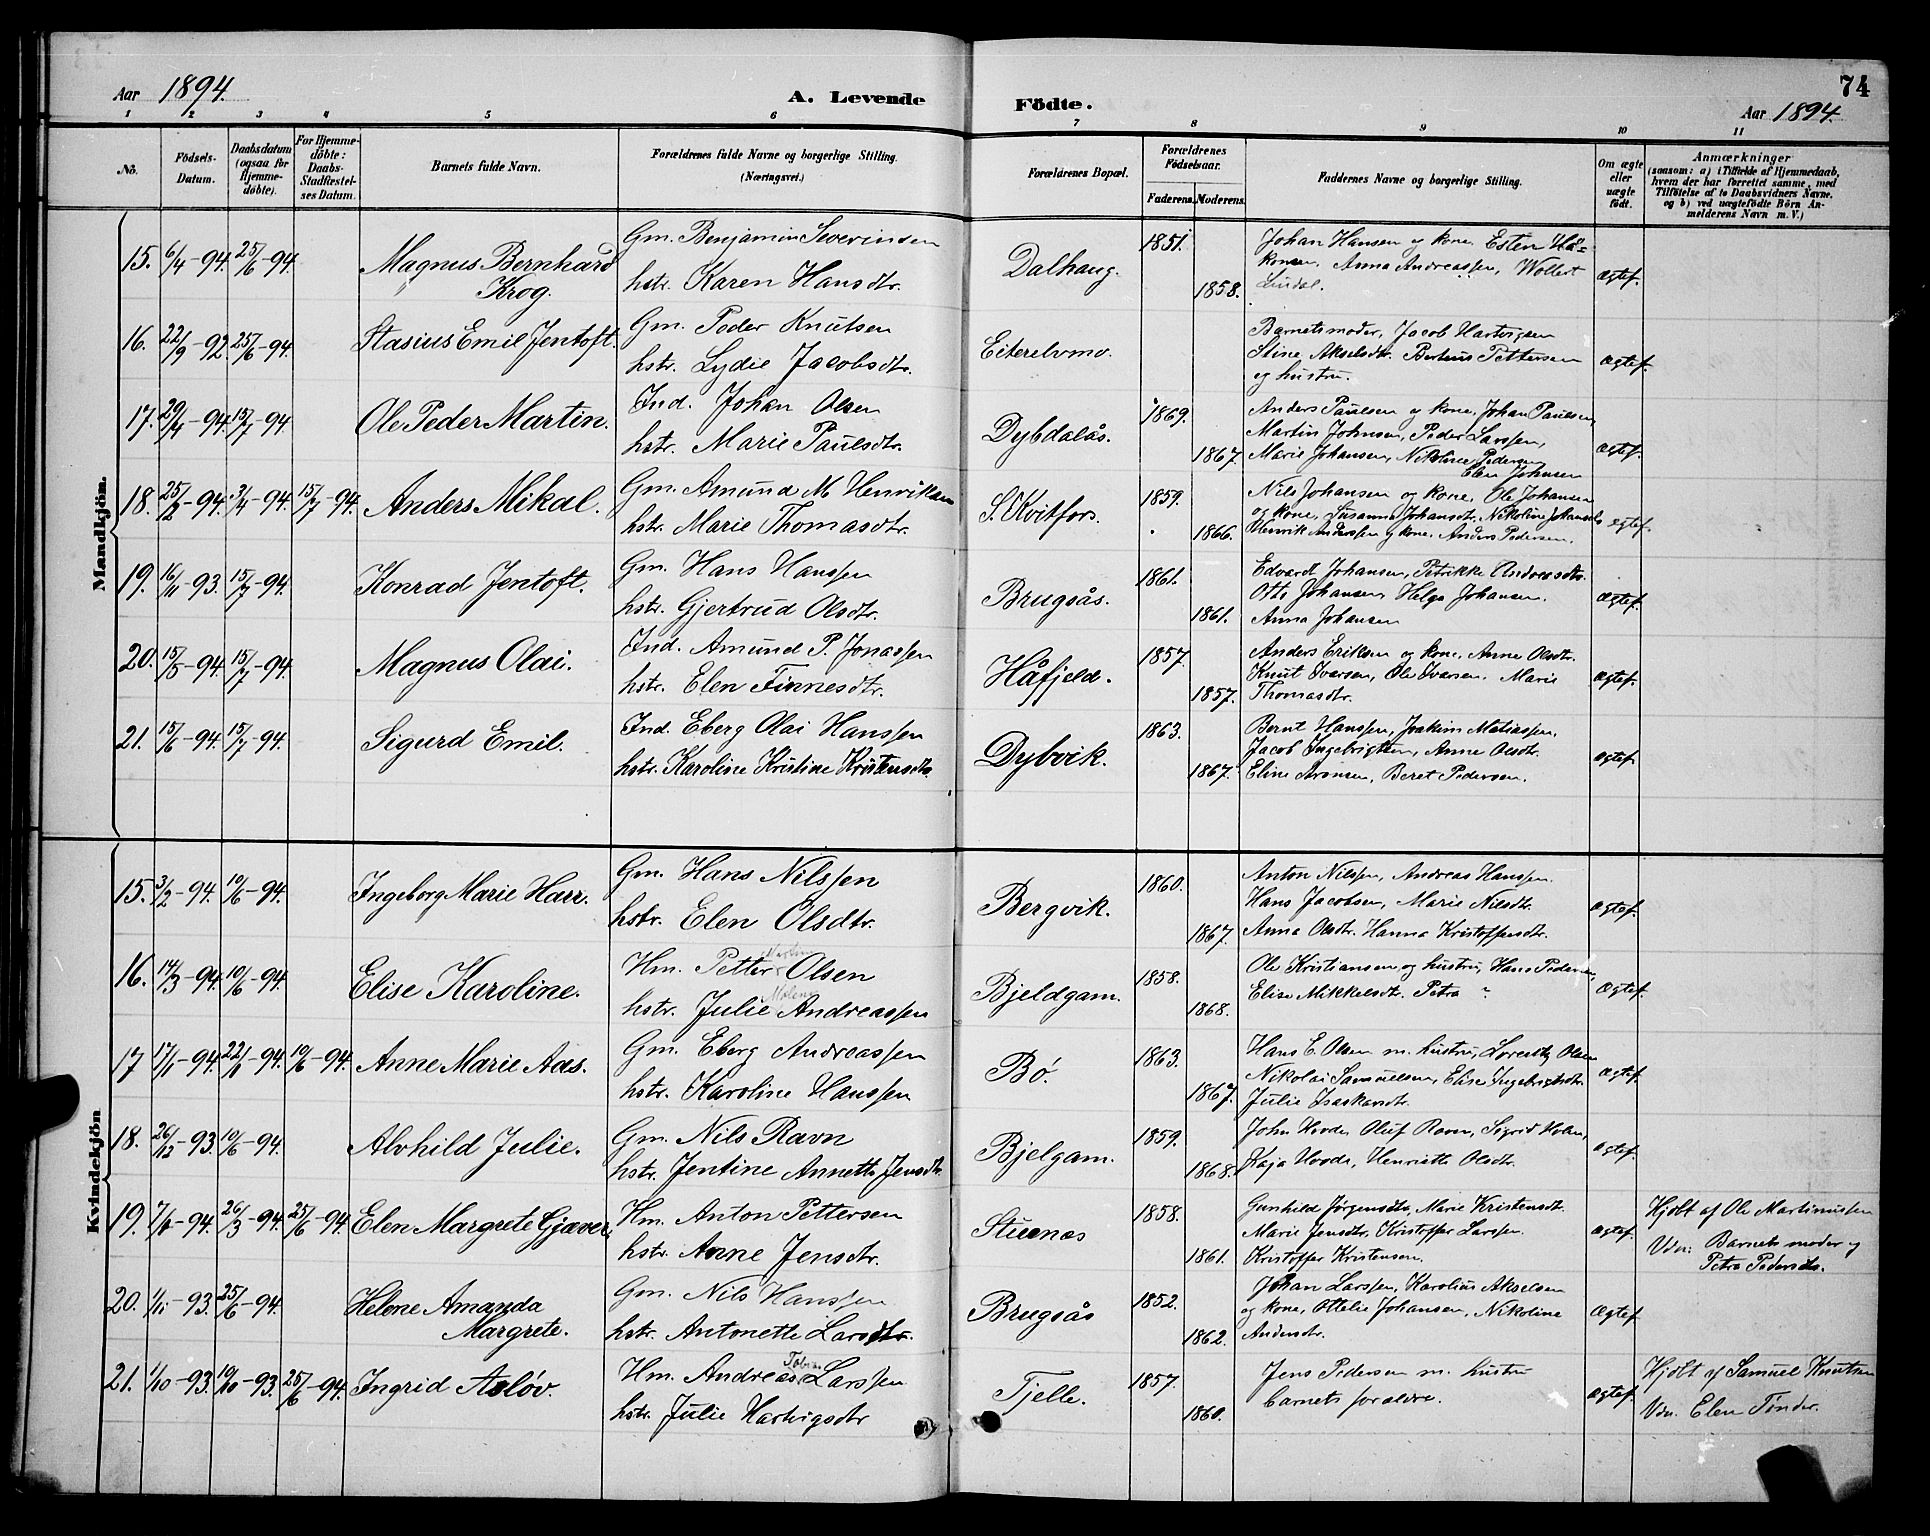 Aar 1894.
A. Levende Födte.
74
Aar 1894.
1 2 3 4 5 6 7 8 9 10 11
No.
Födsels-Datum.
Daabsdatum (ogsaa for Hjemmedöbte).
For Hjemmedöbte: Daabs-Stadfæstelses Datum.
Barnets fulde Navn.
Forældrenes fulde Navne og borgerlige Stilling.
(Næringsvei.)
Forældrenes Bopæl.
Forældrenes Födselsaar.
Faderens. Moderens.
Faddernes Navne og borgerlige Stilling.
Om ægte eller uægte födt.
Anmærkninger
(saasom: a) i Tilfælde af Hjemmedaab, hvem der har forrettet samme, med Tilföielse af to Daabsvidners Navne, og b) ved uægtefödte Börn Anmelderens Navn m. V.)
Mandkjön.
15. 6/4-94. 25/6-94. Magnus Bernhard Krog.
Gm. Benjamin Severinsen
hstr. Karen Hansdtr.
Dalhaug. 1851. 1858.
Johan Hansen og kone, Esten Hå=
konsen, Anna Andreassen, Wollert
Lindal.
Ægtef.
16. 22/9-92. 25/6-94. Stasius Emil Jentoft.
Gm. Peder Knutsen
hstr. Lydie Jacobsdtr.
Eiterelvmo.
Barnets moder, Jacob Hartvigsen
Stine Akselsdtr. Berteus Pettersen
og hustru.
Ægtef.
17. 29/4-94. 15/7-94. Ole Peder Martin.
Ind. Johan Olsen
hstr. Marie Paulsdtr.
Dybdalås. 1869. 1867.
Anders Paulsen og kone, Johan Paulsen,
Martin Johnsen, Peder Larssen,
Marie Johansen, Nikoline Pedersen
Elen Johnsen
Ægtef.
18. 25/2-94. 3/4-94. 15/7-94. Anders Mikal.
Gm. Amund M Henriksen
hstr. Marie Thomasdtr.
S. Kvitfors. 1859. 1866.
Nils Johansen og kone, Ole Johansen
og kone, Susanna Johansdtr, Nikoline Johansdtr
Henrik Anderssen og kone. Anders Pedersen.
Ægtef.
19. 16/11-93. 15/7-94. Konrad Jentoft.
Gm. Hans Hanssen
hstr. Gjertrud Olsdtr.
Brugsås. 1861. 1861.
Edvard Johansen, Petrikke Andreasdtr.
Otto Johansen, Helga Johansen.
Anna Johansen
Ægtef.
20. 15/5-94. 15/7-94. Magnus Olai.
Ind. Amund P. Jonassen
hstr. Elen Finnesdtr.
Håfjeld. 1857. 1857.
Anders Eriksen og kone, Anne Olsdtr.
Knut Ivarsen, Ole Ivarsen. Marie
Thomasdtr.
Ægtef.
21. 15/6-94. 15/7-94. Sigurd Emil.
Ind. Eberg Olai Hanssen
hstr. Karoline Kristine Kristensdtr.
Dybvik. 1863. 1867.
Bernt Hanssen, Joakim Matiassen,
Jacob Ingebrigtsen, Anne Olsdtr.
Eline Aronsen, Beret Pedersen.
Ægtef.
Kvindekjön
15. 3/2-94. 10/6-94. Ingeborg Marie Harr.
Gm. Hans Nilssen
hstr. Elen Olsdtr.
Bergvik. 1860. 1867.
Anton Nilssen, Andreas Hanssen.
Hans Jacobsen, Marie Nilsdtr.
Anna Olsdtr. Hanna Kristoffersdtr.
Ægtef.
16. 14/3-94. 10/6-94. Elise Karoline.
Hm. Petter Martin Olsen
hstr. Julie Andreassen
Bjeldgam. 1858. 1868.
Ole Kristiansen og hustru, Hans Pedersen,
Elise Mikkelsdtr. Petra ?
Ægtef.
17 17/1-94. 22/1-94. 10/6-94. Anne Marie Aas.
Gm. Eberg Andreassen
hstr. Karoline Hanssen
Bö. 1863. 1867.
Hans E. Olsen m. hustru, Olsen
Nikolai Samuelsen, Elise Ingebrigtsdtr
Julie Isaksendtr.
Ægtef.
18. 26/12-93. 10/6-94. Alvhild Julie.
Gm. Nils Ravn
hstr. Jentine Annette Jensdtr
Bjelgam. 1859. 1868.
John Hovde, Oluf Ravn, Sigrid Holm,
Kaja Hovde, Henriette Olsdtr.
Ægtef.
19. 7/1-94. 26/3-94. 25/6-94. Elen Margrete Gjæver.
Hm. Anton Pettersen
hstr. Anne Jensdtr.
Stuenæs 1858. 1861.
Gunhilde Jørgensdtr, Marie Kristensdtr.
Marie Jensdtr, Kristoffer Larssen.
Kristoffer Kristensen.
Ægtef.
Hjdbt af Ole Martinussen
Vdn: Barnets moder og
Petra Pedersdtr.
20. 1/11-93. 25/6-94. Helene Amanda Margrete.
Gm. Nils Hanssen
hstr. Antonette Larsdtr.
Brugsås 1852. 1862.
Johan Larssen, Karolius Akselsen
og kone, Ottelie Johansen, Nikoline
Andersdtr.
Ægtef.
21. 1/10-93. 19/10-93. 25/6-94. Ingrid Asløv.
Hm. Andreas Tobias Larssen
hstr. Julie Hartvigsdtr
Tjelle. 1857. 1860.
Jens Pedersen m. hustru
barnets forældre.
Ægtef.
Hjdbt af Samuel Knutsen
Vdn. Elen Finder.